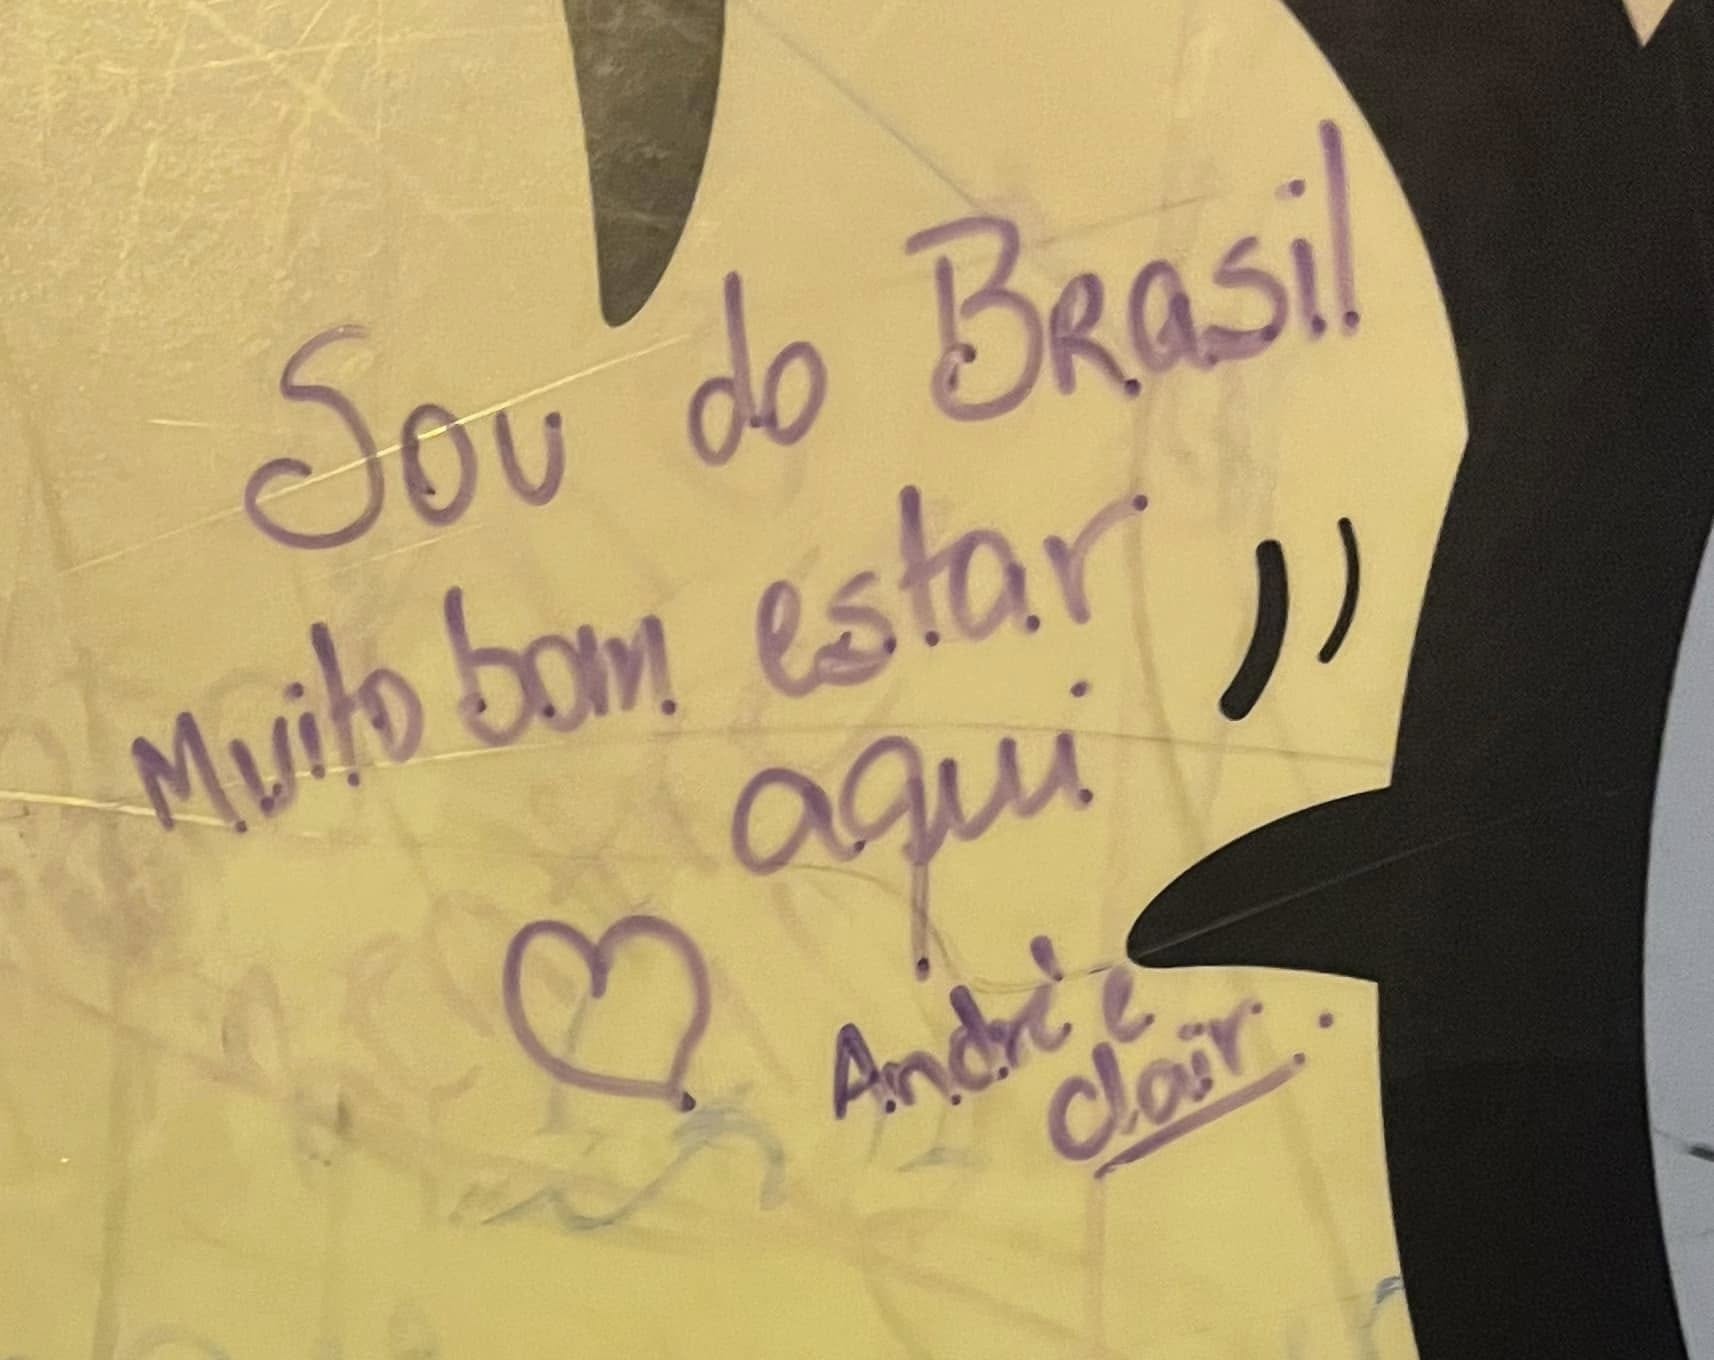 Sou do BRasil
Muito bom estar
aqui
André e
clair